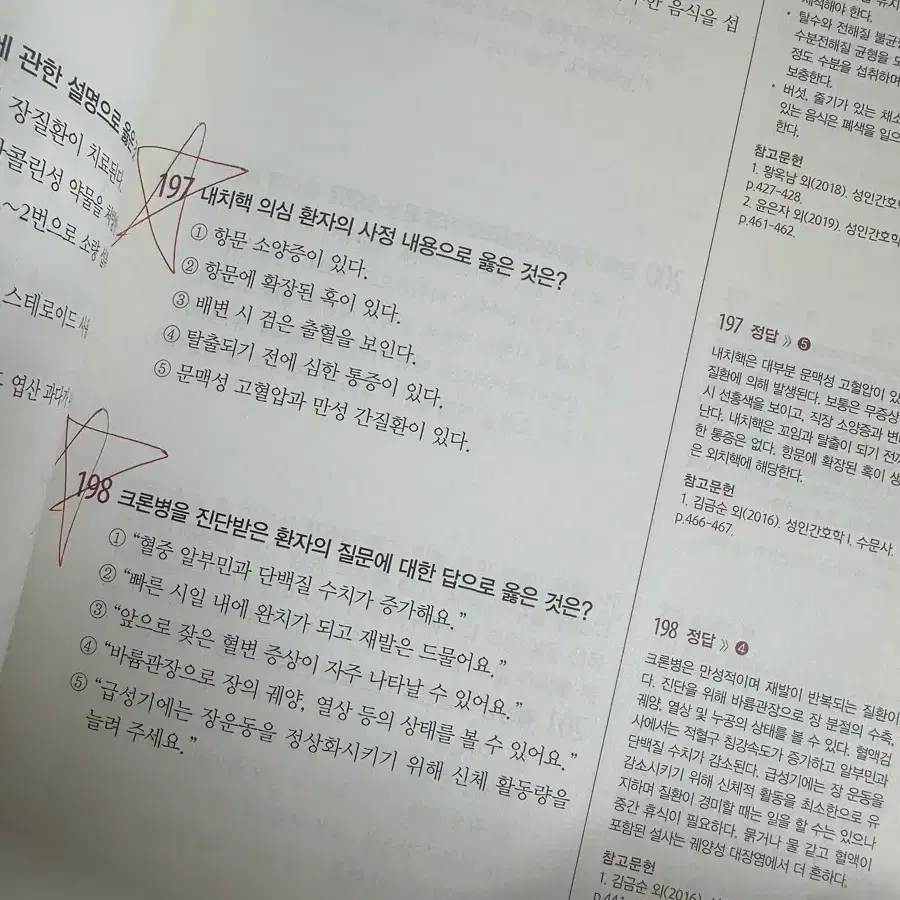 에 관한 설명으로 옳은
장질환이 치료된다.
콜린성 약물을
~2번으로 소량
스테로이드
엽산 과다
한 음식을 섭
197 내치핵 의심 환자의 사정 내용으로 옳은 것은?
① 항문 소양증이 있다.
② 항문에 확장된 혹이 있다.
③ 배변 시 검은 출혈을 보인다.
④ 탈출되기 전에 심한 통증이 있다.
⑤ 문맥성 고혈압과 만성 간질환이 있다.
198 크론병을 진단받은 환자의 질문에 대한 답으로 옳은 것은?
① “혈중 알부민과 단백질 수치가 증가해요.”
② “빠른 시일 내에 완치가 되고 재발은 드물어요.”
③ “앞으로 잦은 혈변 증상이 자주 나타날 수 있어요.”
④ “바륨관장으로 장의 궤양, 열상 등의 상태를 볼 수 있어요.”
⑤ “급성기에는 장운동을 정상화시키기 위해 신체 활동량을
늘려 주세요.”
제석해야 한다.
• 탈수와 전해질 불균
수분전해질 균형을 모
정도 수분을 섭취하며
보충한다.
• 버섯, 줄기가 있는 채소
있는 음식은 폐색을 일으
한다.
참고문헌
1. 황옥남 외(2018). 성인간호학
p.427-428.
2. 윤은자 외(2019). 성인간호학
p.461-462.
197 정답 》 ⑤
내치핵은 대부분 문맥성 고혈압이 있
질환에 의해 발생된다. 보통은 무증상
시 선홍색을 보이고, 직장 소양증과 변
난다. 내치핵은 꼬임과 탈출이 되기 전
한 통증은 없다. 항문에 확장된 혹이 생
은 외치핵에 해당한다.
참고문헌
1. 김금순 외(2016). 성인간호학 I. 수문사.
p.466-467.
198 정답 》 ④
크론병은 만성적이며 재발이 반복되는 질환이
다. 진단을 위해 바륨관장으로 장 분절의 수축,
궤양, 열상 및 누공의 상태를 볼 수 있다. 혈액검
사에서는 적혈구 침강속도가 증가하고 알부민과
단백질 수치가 감소된다. 급성기에는 장 운동을
감소시키기 위해 신체적 활동을 최소한으로 유
지하며 질환이 경미할 때는 일을 할 수는 있으나
중간 휴식이 필요하다. 묽거나 물 같고 혈액이
포함된 설사는 궤양성 대장염에서 더 흔하다.
참고문헌
1. 김금순 외(2016).